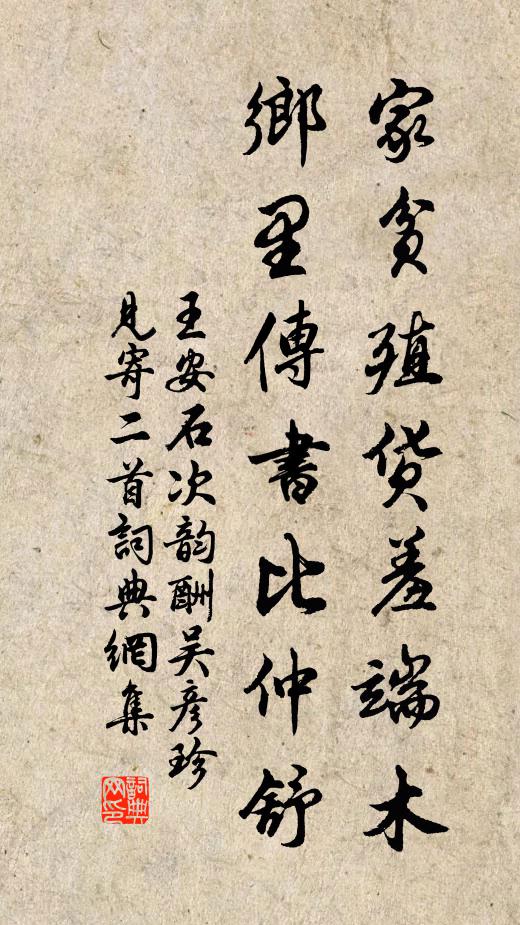 家貧殖貨羞端木
鄉里傳書比仲舒
王安石次韵酬吴彥珍
見寄二首詞典網集
詞典网印